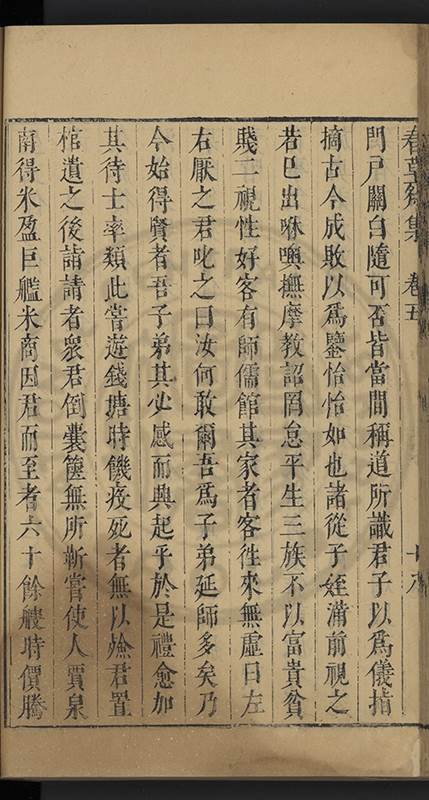 春草齋集 卷五
門戶關白隨可否皆當間稱道所識君子以爲儀指
摘古今成敗以爲鑒怡怡如也諸從子姪滿前視之
若己出咻噢撫摩教詔罔怠平生三族不以富貴貧
賤二視性好客有師儒館其家者客徃來無虛日左
右厭之君叱之曰汝何敢爾吾爲子弟延師多矣乃
今始得賢者吾子弟其必感而興起乎於是禮愈加
其待士率類此嘗遊錢塘時饑疫死者無以殮君置
棺遺之後諸請者衆君倒囊篋無所靳嘗使人賈泉
南得米盈巨艦米商因君而至者六十餘艘時價騰